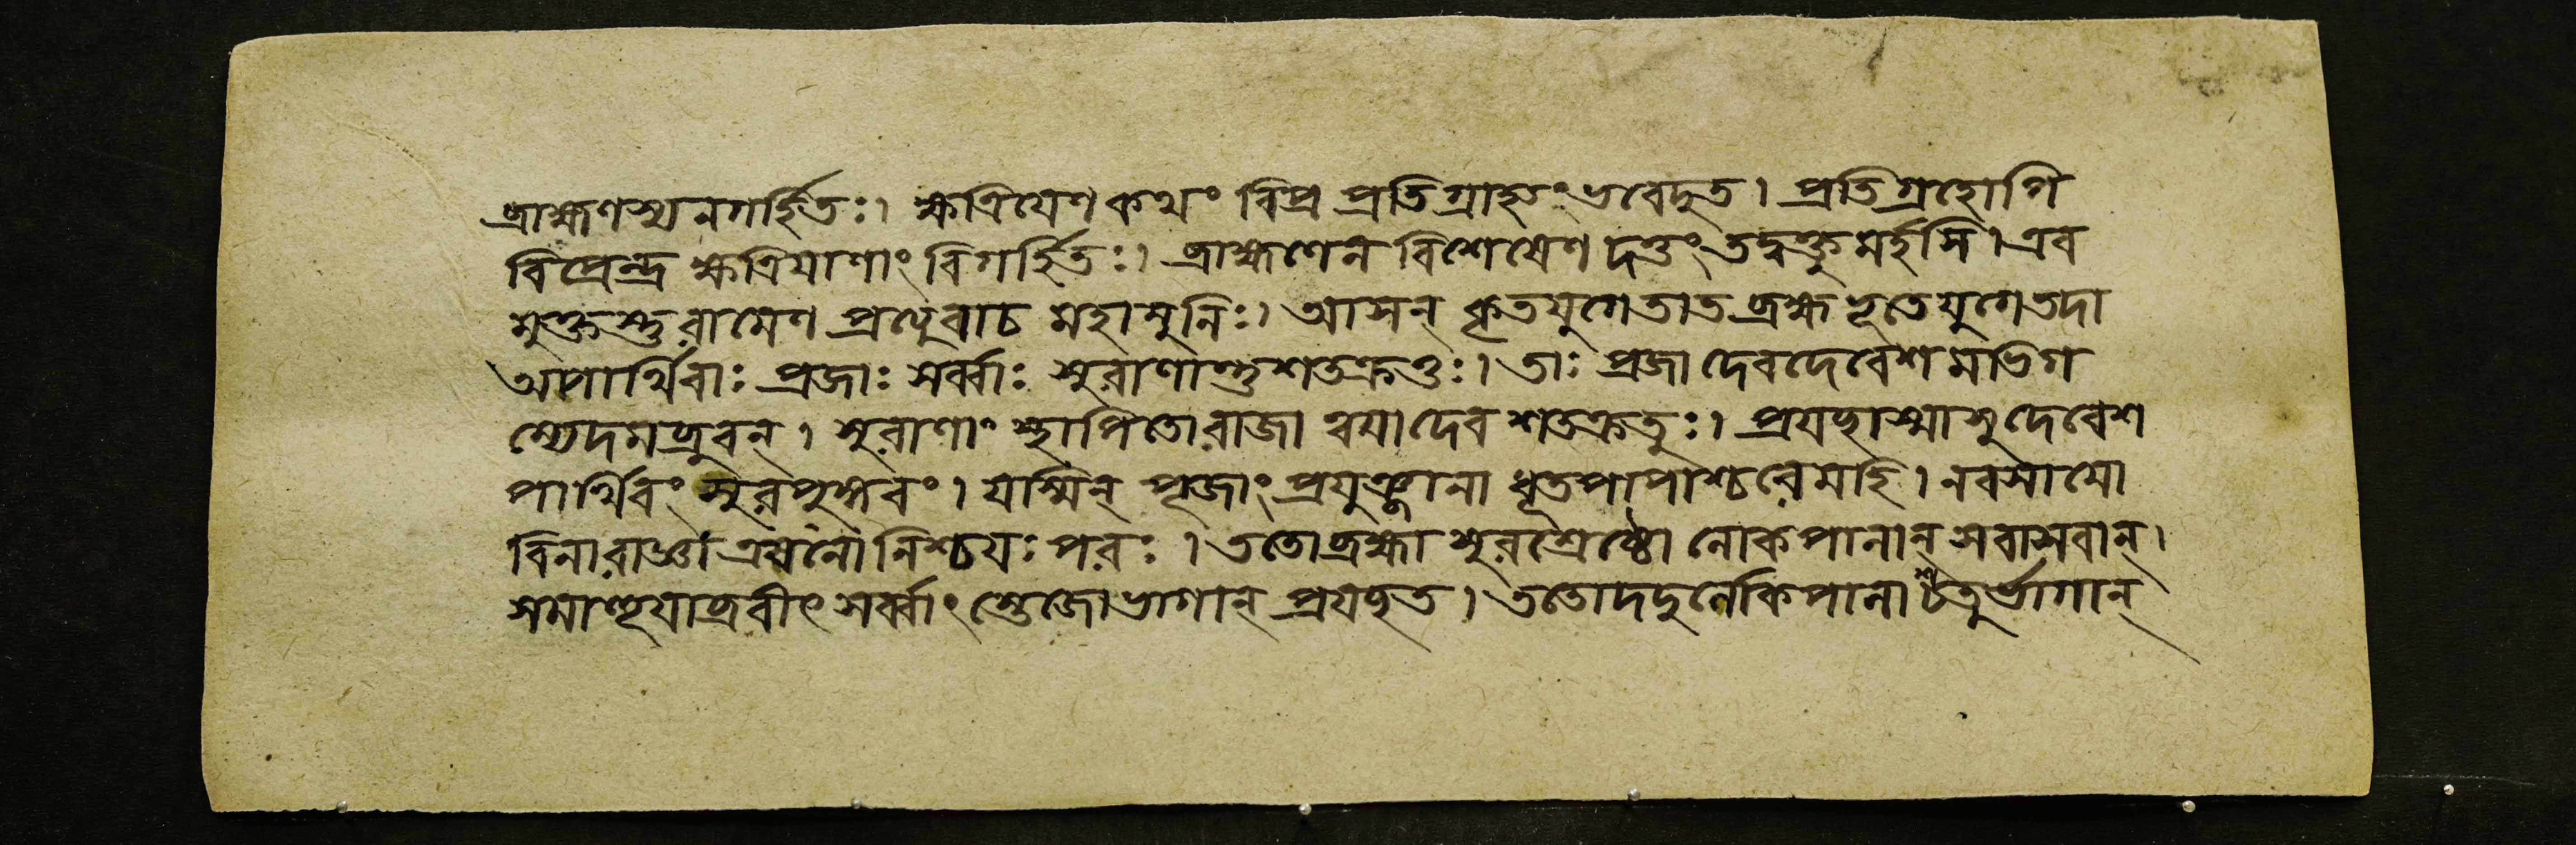 ব্রাহ্মণস্যনগর্হিতঃ। ক্ষত্রিযেণ কথং বিপ্র প্রতিগ্রাহ্যং ভবেদুত। প্রতিগ্রহোপি
বিপ্রেন্দ্র ক্ষত্রিযাণাং বিগর্হিতঃ। ব্রাহ্মণেন বিশেষেণ দত্তং তদ্বক্তুমর্হসি। এব
মুক্তস্তুরামেণ প্রত্যুবাচ মহামুনিঃ। আসন্ কৃতযুগেতাত ব্রহ্মভূতেযুগেতদা
অপার্থিবাঃ প্রজাঃ সর্ব্বাঃ সুরাণান্তুশতক্রতুঃ। তাঃ প্রজা দেবদেবেশমভিগ
ম্যেদমব্রুবন্। সুরাণাং স্থাপিতোরাজা ত্বযাদেব শতক্রতুঃ। প্রযচ্ছাস্মাসুদেবেশ
পার্থিবং সুরপুঙ্গবং। যস্মিন্ পূজাং প্রযুঞ্জানা ধূতপাপাশ্চরেমহি। নবসামো
বিনারাজ্ঞা এষনো নিশ্চযঃ পরঃ। ততোব্রহ্মা সুরশ্রেষ্ঠো লোকপালান্ সবাসবান্।
সমাহূযাব্রবীৎ সর্ব্বাংস্তেজোভাগান্ প্রযচ্ছত। ততোদদুর্লোকপালাশ্চতুর্ভাগান্